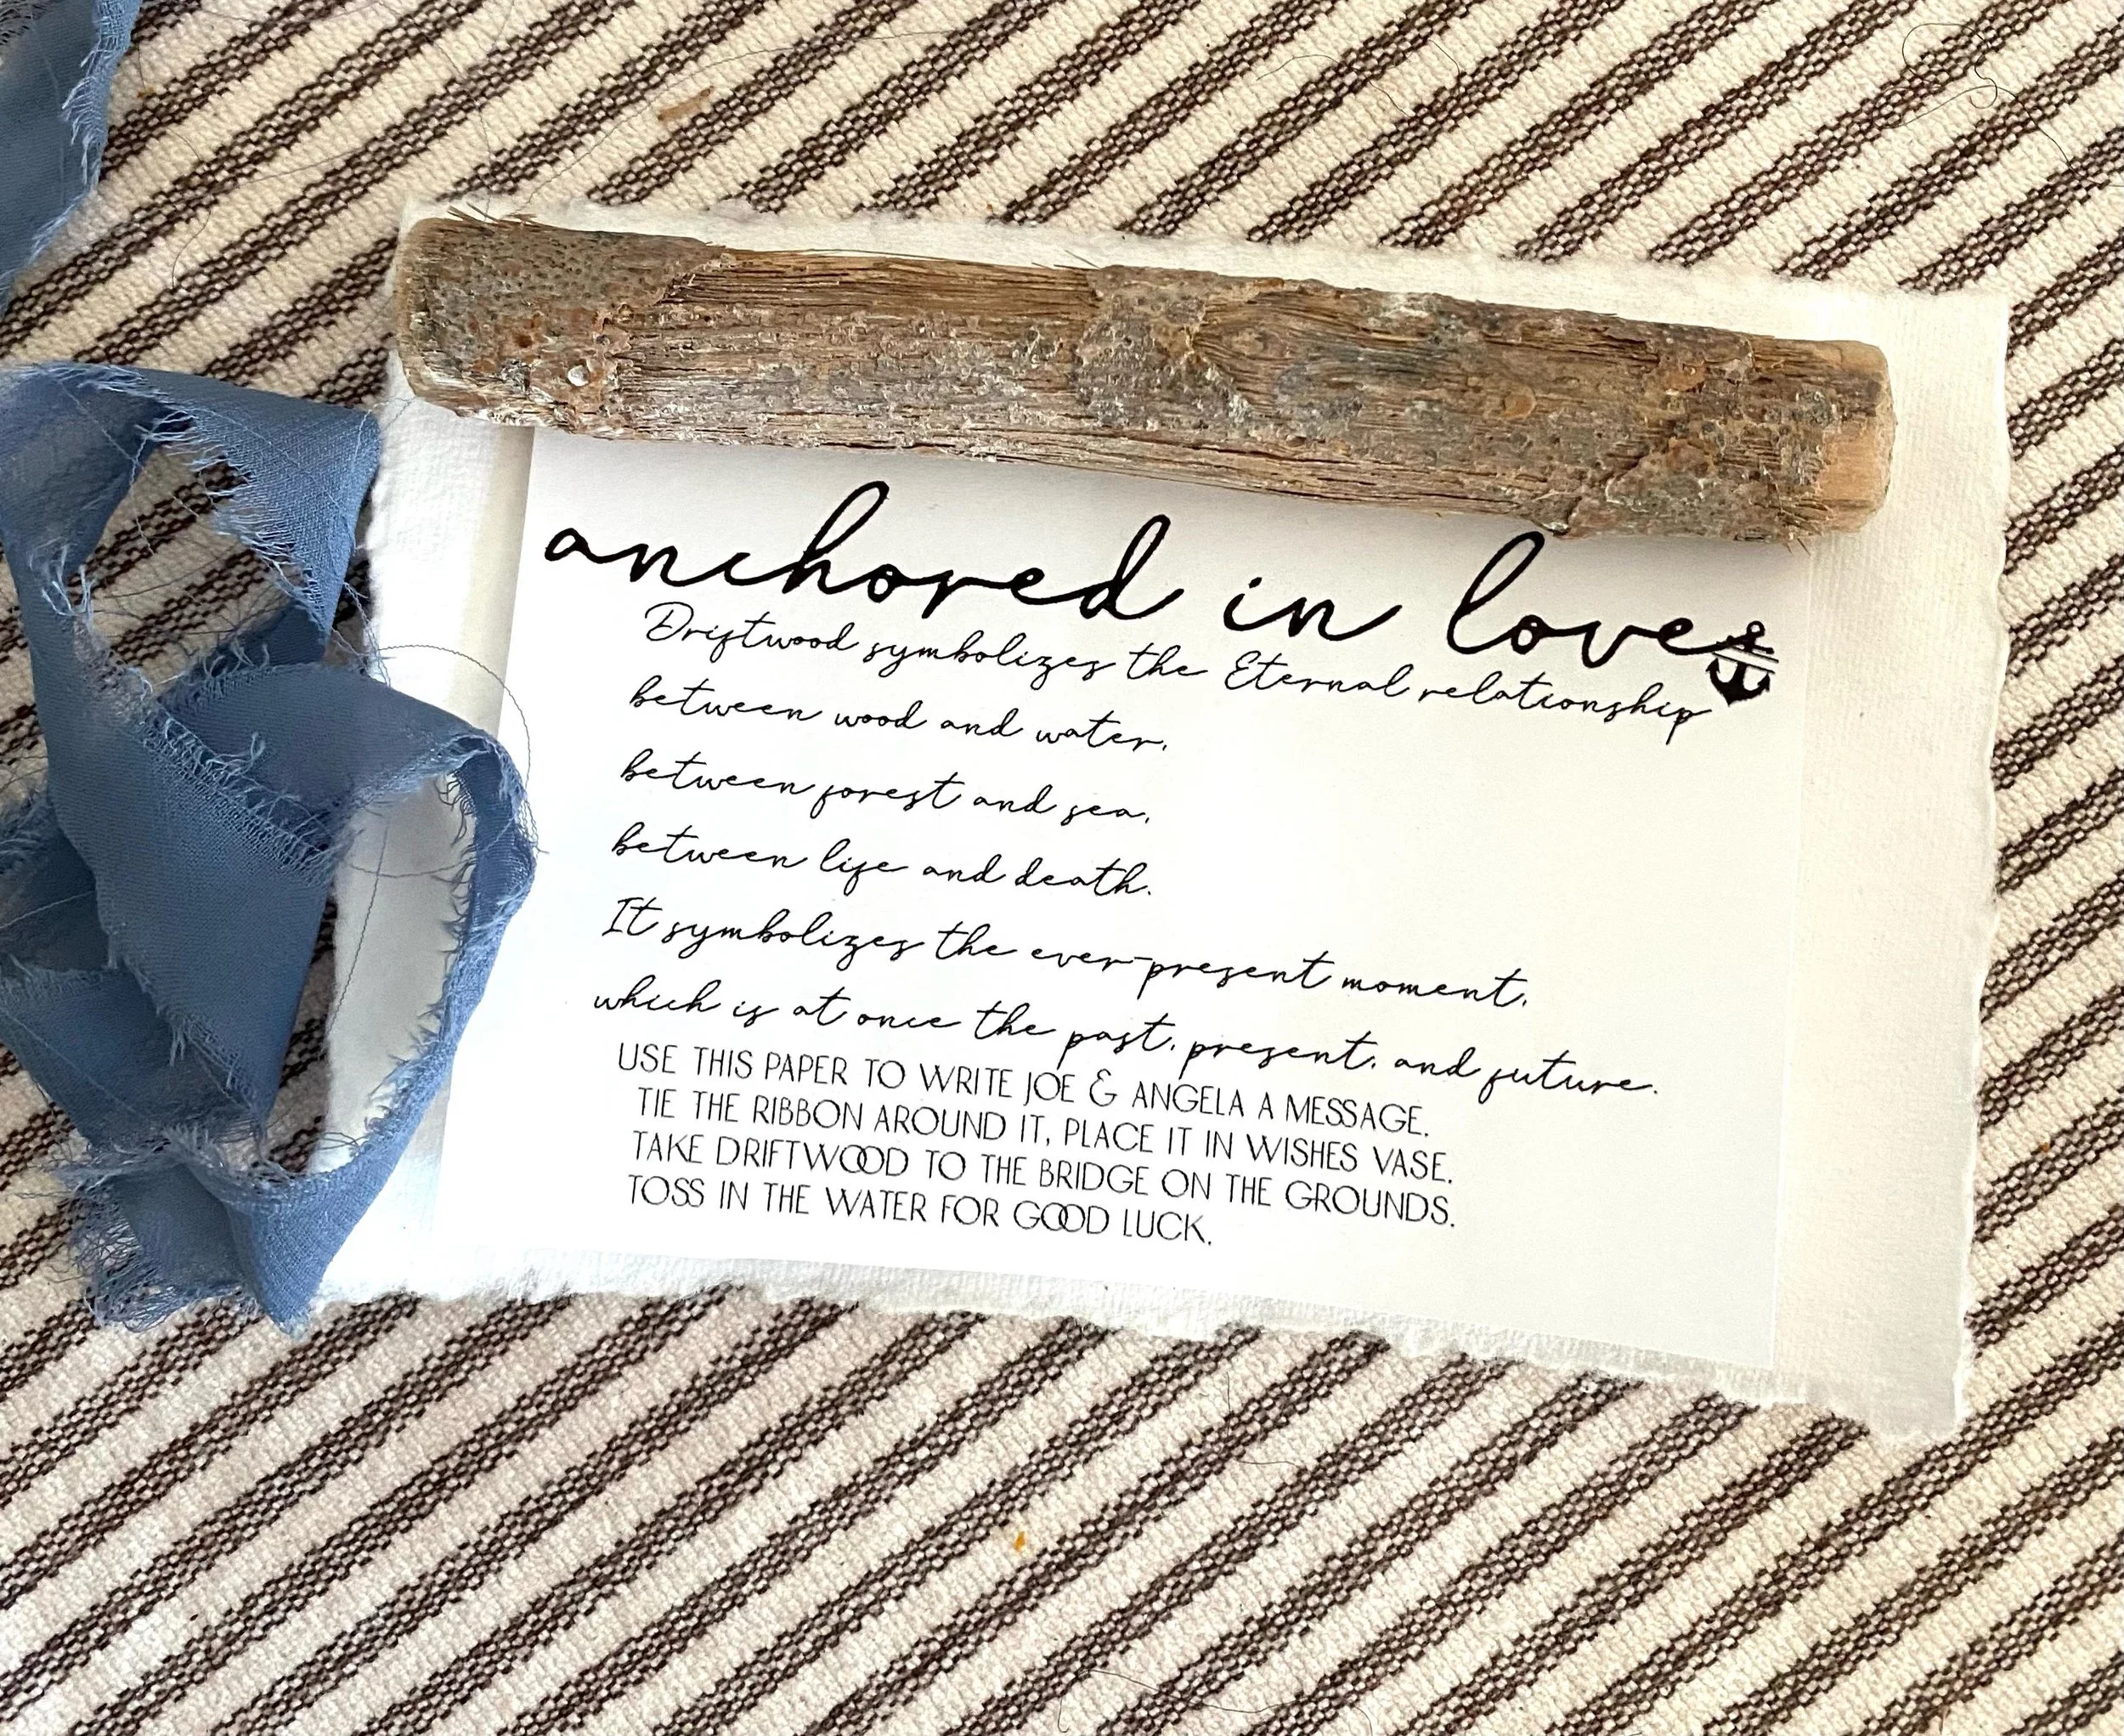 anchored in love
Driftwood symbolizes the Eternal relationship
between wood and water,
between forest and sea,
between life and death.
It symbolizes the ever-present moment,
which is at once the past, present, and future.
USE THIS PAPER TO WRITE JOE & ANGELA A MESSAGE.
TIE THE RIBBON AROUND IT, PLACE IT IN WISHES VASE.
TAKE DRIFTWOOD TO THE BRIDGE ON THE GROUNDS.
TOSS IN THE WATER FOR GOOD LUCK.